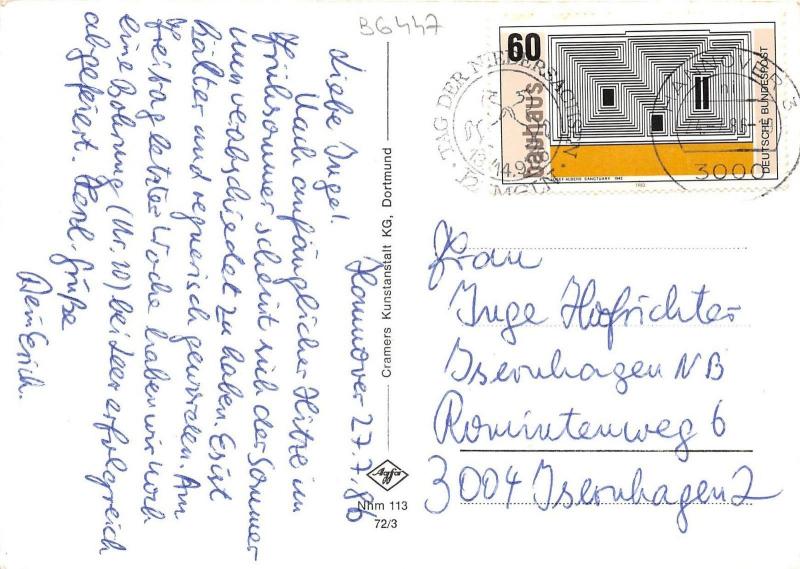 B6447
Hannover 27.7.86
Liebe Inge!
Nach anfänglicher Hitze im
Frühsommer scheint sich der Sommer
nun verabschiedet zu haben. Es ist
kälter und regnerisch geworden. Am
Freitag letzter Woche haben wir noch
eine Bohrung (Nr. 10) bei Leer erfolgreich
abgefeiert. Herzl. Grüße
Dein Erich.
Cramers Kunstanstalt KG, Dortmund
Agfa
Nhm 113
72/3
60
bauhaus
DEUTSCHE BUNDESPOST
JOSEF ALBERS SANCTUARY 1942
1983
TAG DER NIEDERSACHSEN
HANNOVER
3000
Frau
Inge Hofrichter
Isernhagen NB
Romintenweg 6
3004 Isernhagen 2